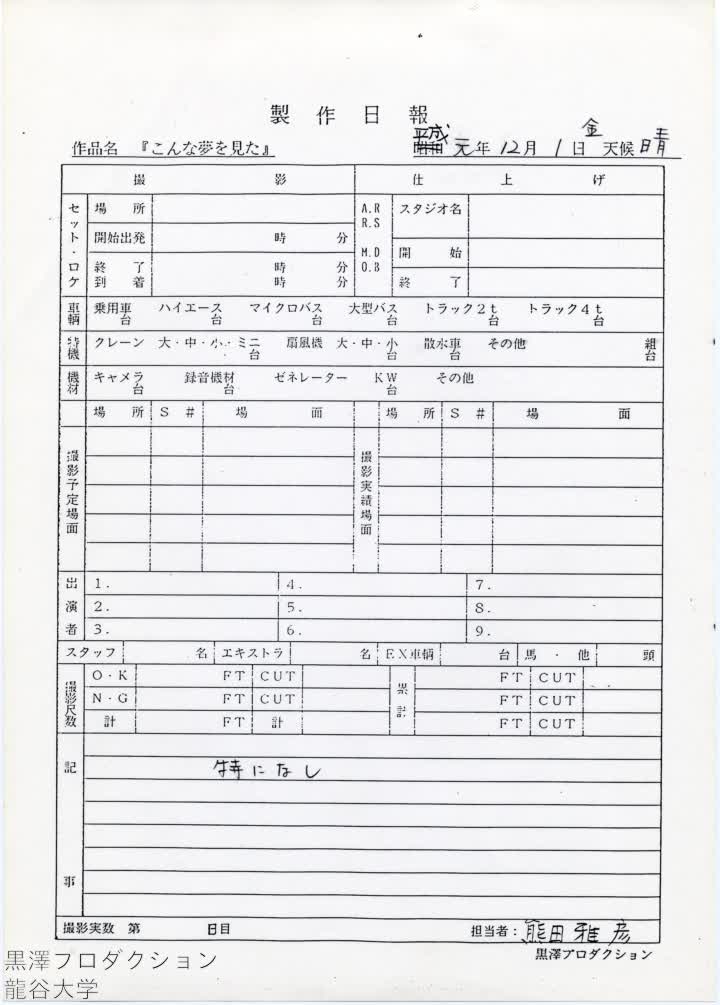 製作日報
作品名 『こんな夢を見た』 平成 昭和 元年 12月 1日 金 天候 晴
撮影 仕上げ
セット・ロケ 場所 A.R R.S スタジオ名
開始出発 時 分
M.D O.B 開始
終了 到着 時 分 時 分 終了
車輌 乗用車 台 ハイエース 台 マイクロバス 台 大型バス 台 トラック2t 台 トラック4t 台
特機 クレーン 大・中・小・ミニ 台 扇風機 大・中・小 台 散水車 台 その他 組 台
機材 キャメラ 台 録音機材 台 ゼネレーター KW 台 その他
場所 S# 場面 場所 S# 場面
撮影予定場面 撮影実績場面
出演者
1. 4. 7.
2. 5. 8.
3. 6. 9.
スタッフ 名 エキストラ 名 EX車輌 台 馬・他 頭
撮影尺数 O・K FT CUT 累計 FT CUT
N・G FT CUT FT CUT
計 FT 計 FT CUT
記事
特になし
撮影実数 第 日目 担当者: 熊田雅彦
黒澤プロダクション
黒澤プロダクション
龍谷大学